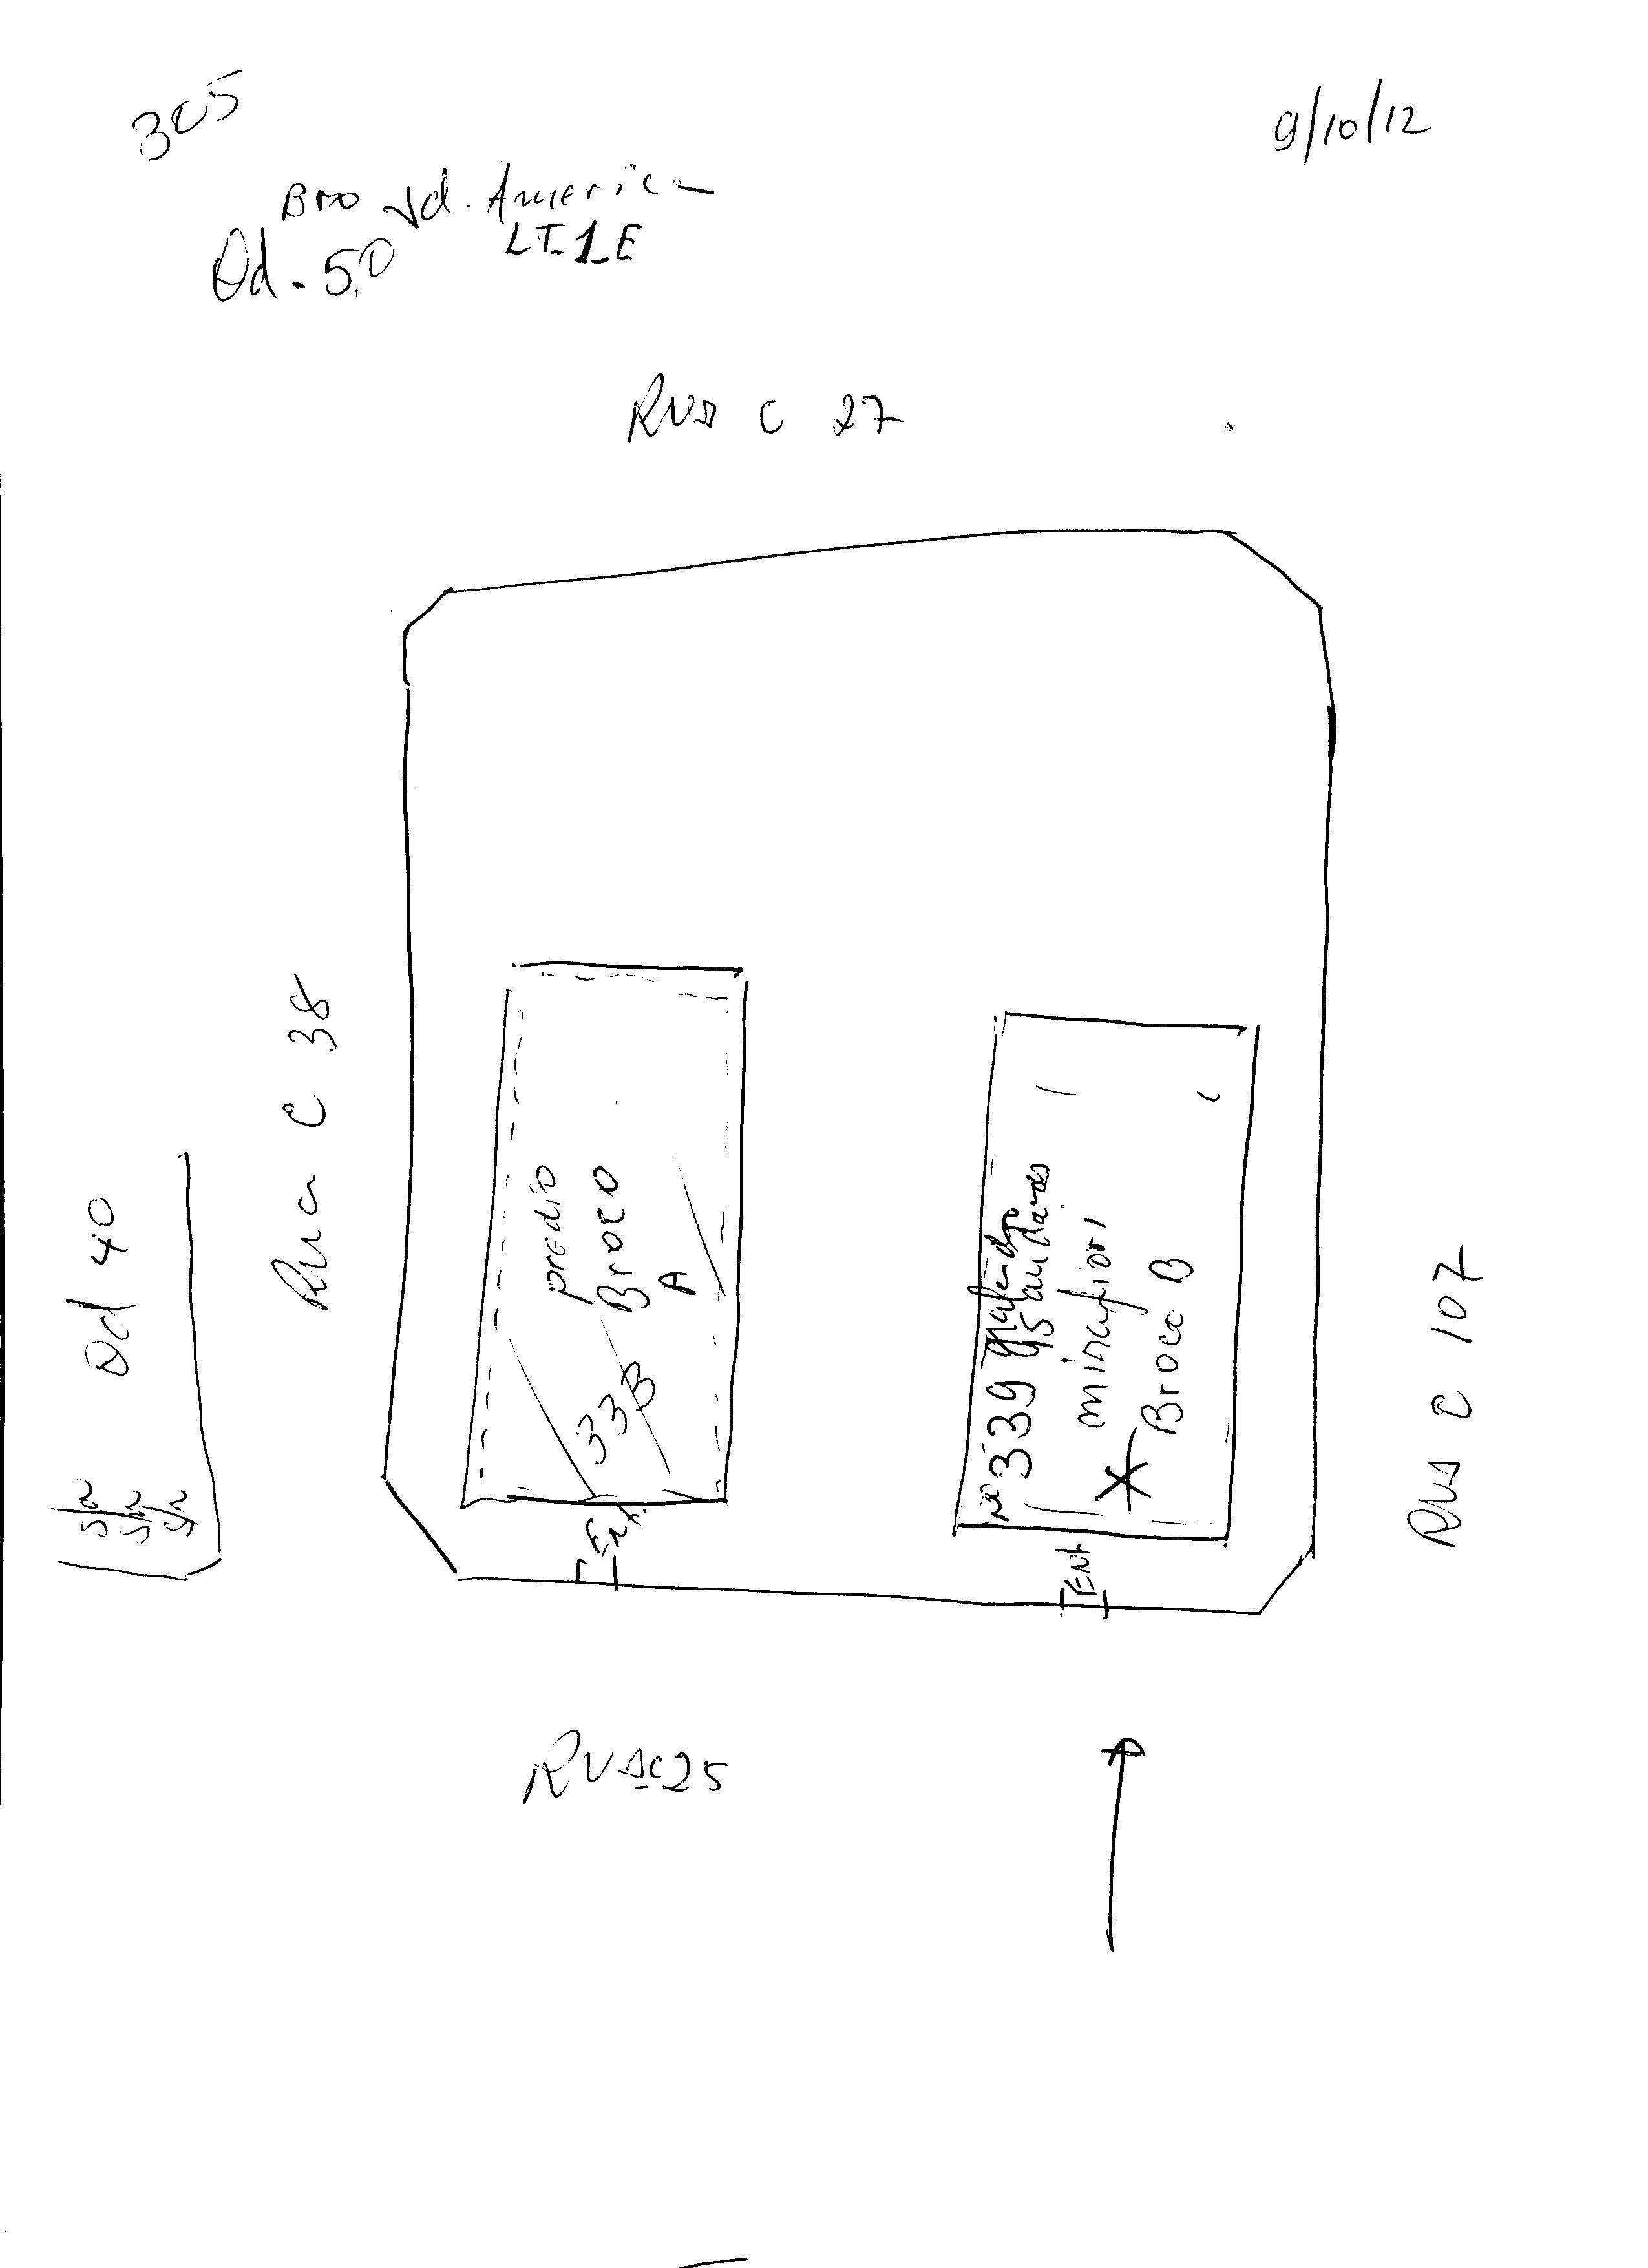 305
9/10/12
Bro Jd. America
Qd. 50
LT-1E
RUA C 27
Rua C 38
Qd 40
S/n
S/n
S/n
predio
Broco
A
33B
Ent.
Nº 339
15 andares
mirafiori
Broco B
Ent
RUA C 107
RUA C 25